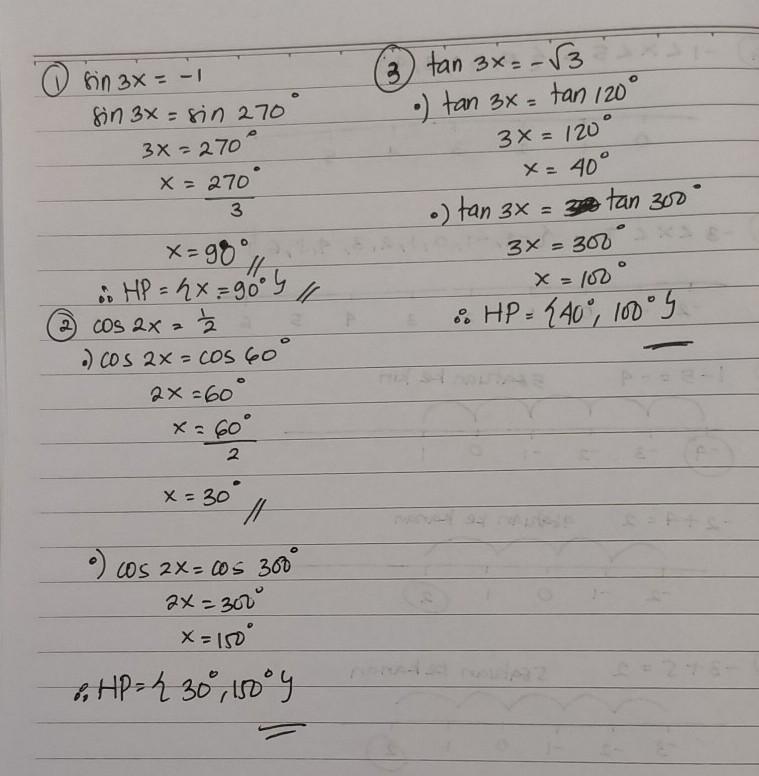 ① sin 3x = -1
sin 3x = sin 270°
3x = 270°
x = 270°
3
x = 90°//
∴ HP = {x = 90°} //
② cos 2x = 1/2
•) cos 2x = cos 60°
2x = 60°
x = 60°
2
x = 30° //
•) cos 2x = cos 300°
2x = 300°
x = 150°
∴ HP = { 30°, 150° }
③ tan 3x = -√3
•) tan 3x = tan 120°
3x = 120°
x = 40°
•) tan 3x = tan 300°
3x = 300°
x = 100°
∴ HP = {40°, 100° }